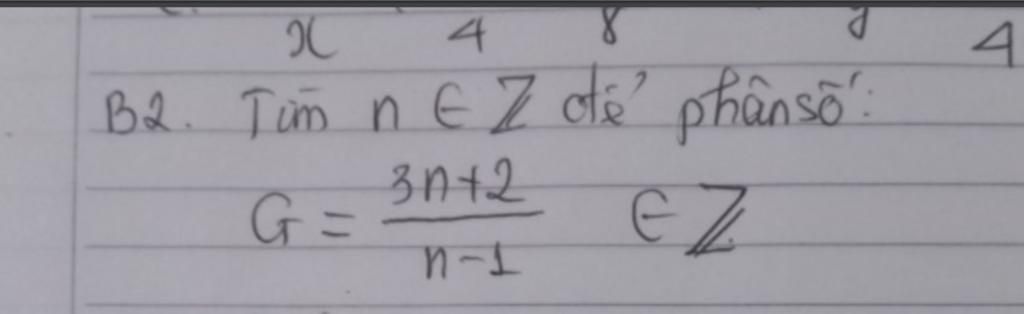 x 4 8 y 4
B2. Tìm n ∈ Z để phân số:
G = \frac{3n+2}{n-1} ∈ Z